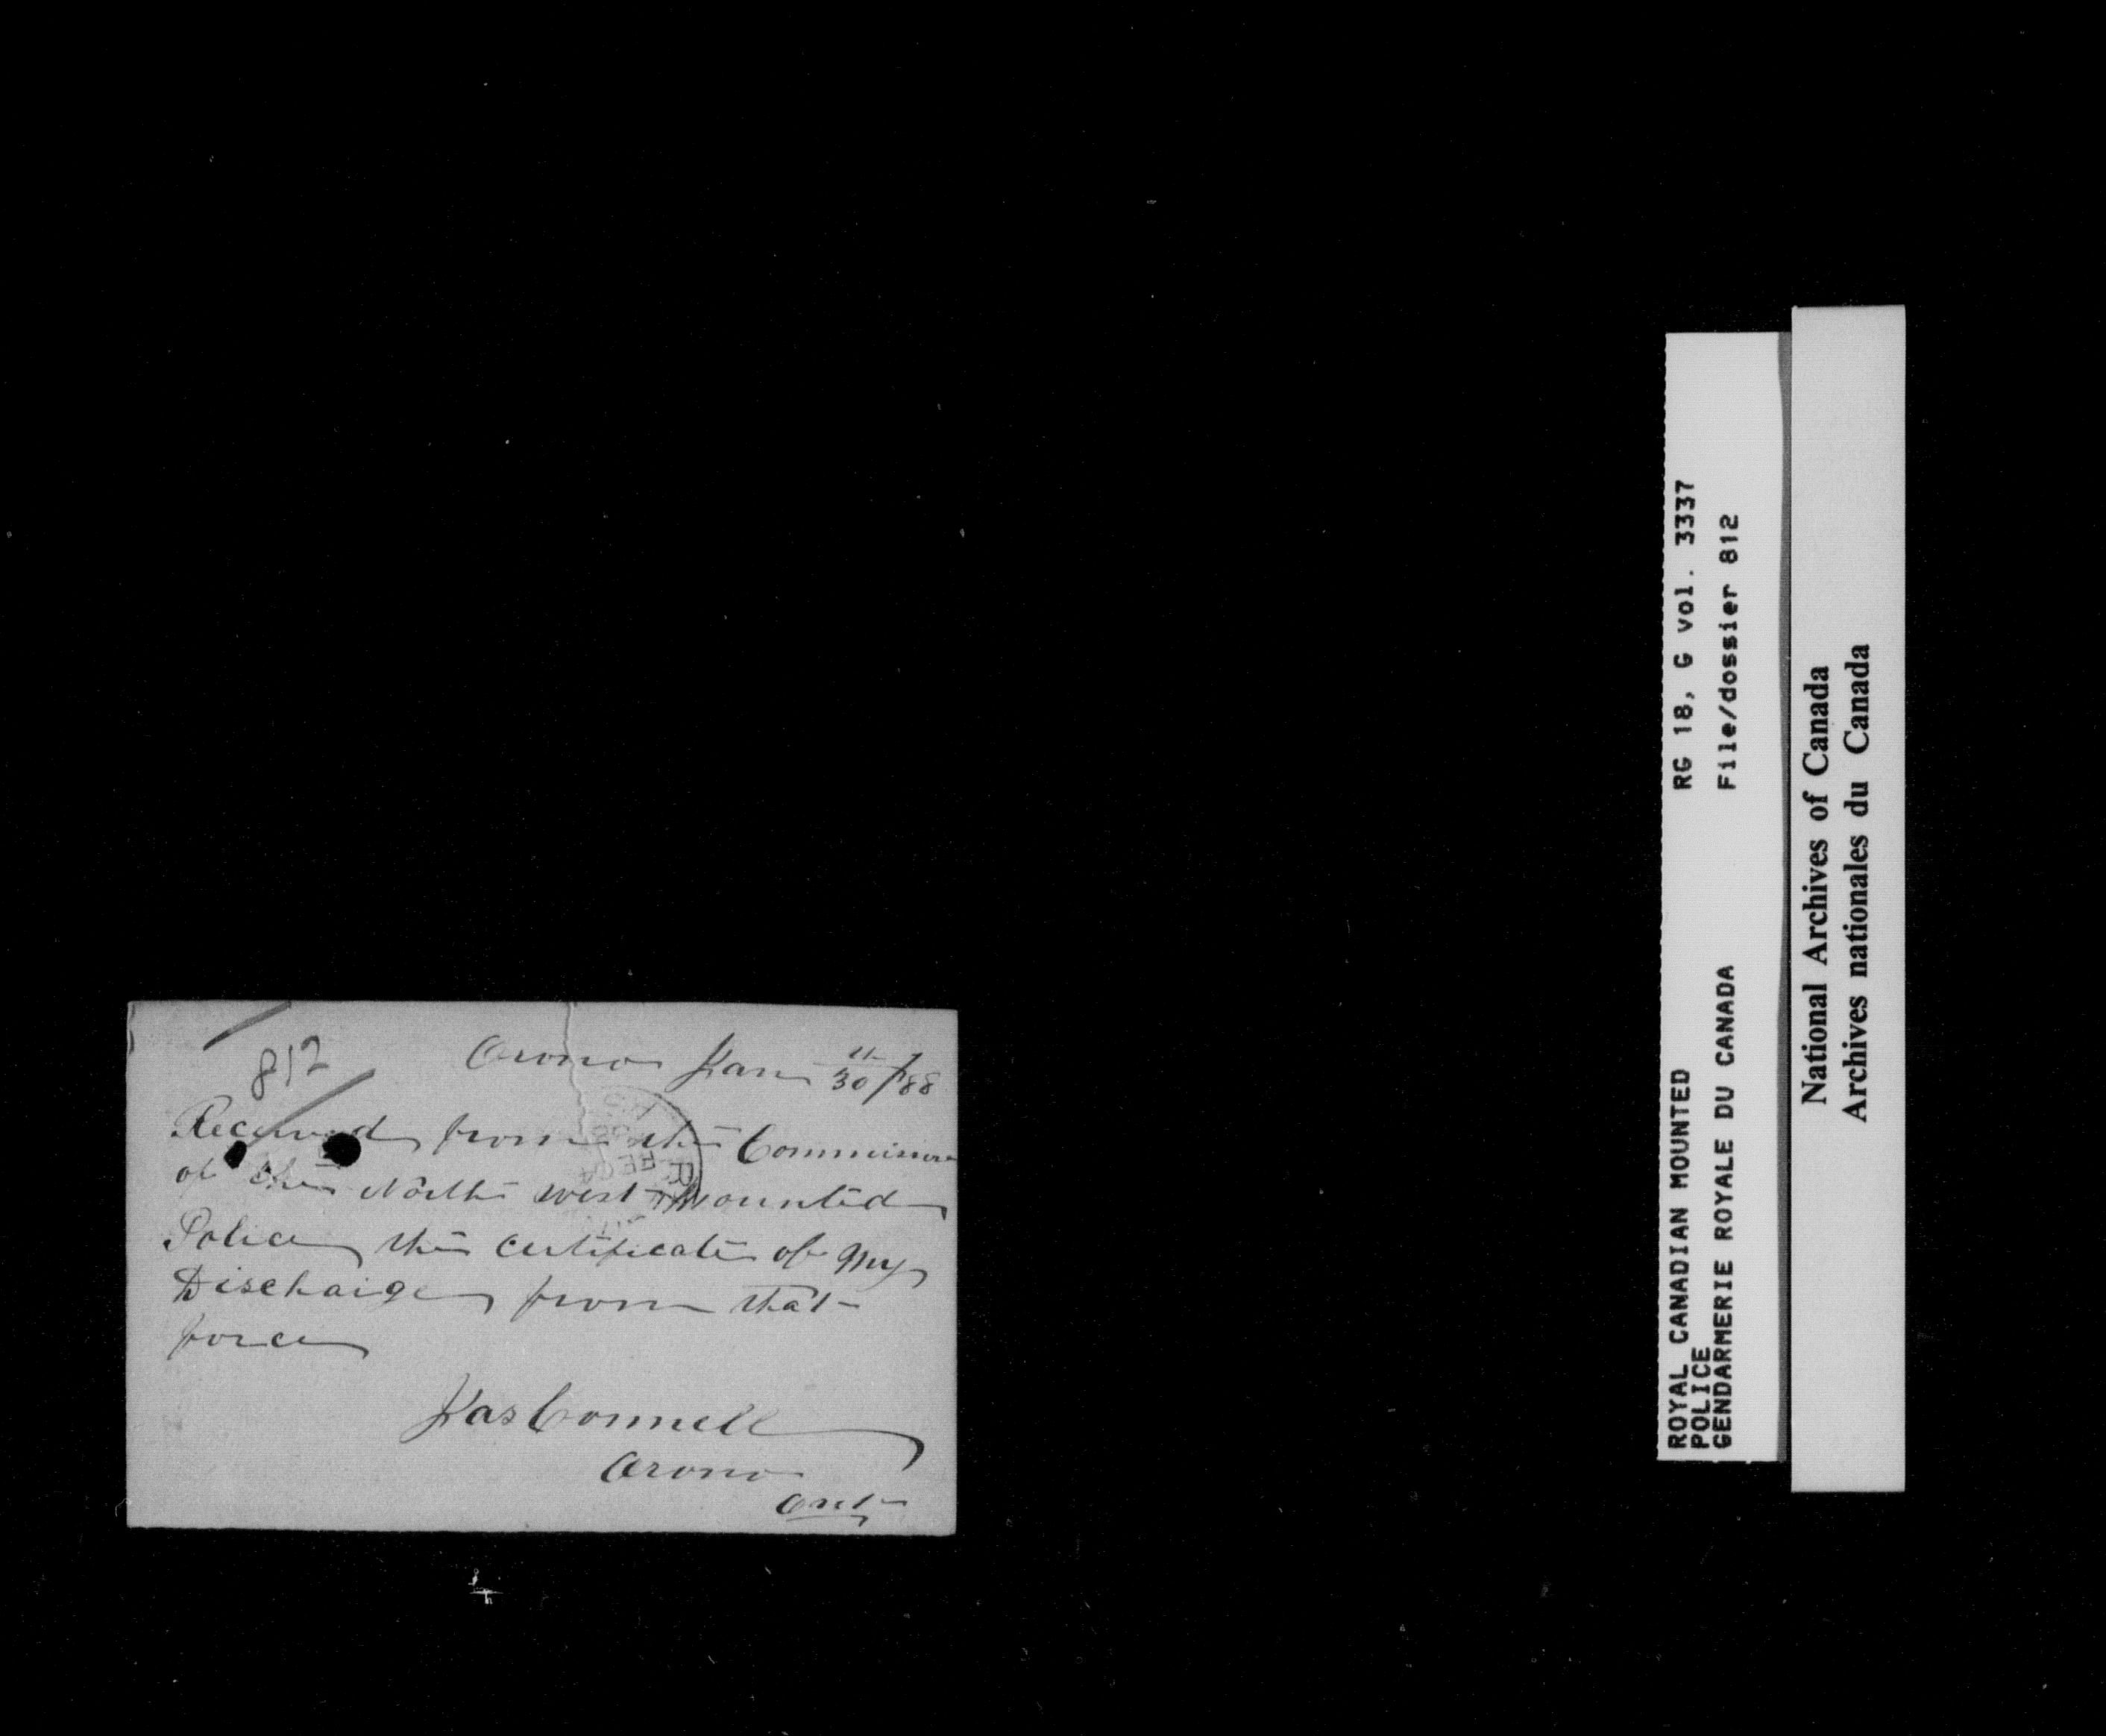 812
Orono Jan 30/88
Received from the Commissioner
of the North west Mounted
Police the certificate of My
Discharge from that
force
Jas Connell
Orono
Ont
ROYAL CANADIAN MOUNTED
POLICE
GENDARMERIE ROYALE DU CANADA
RG 18, G vol. 3337
File/dossier 812
National Archives of Canada
Archives nationales du Canada